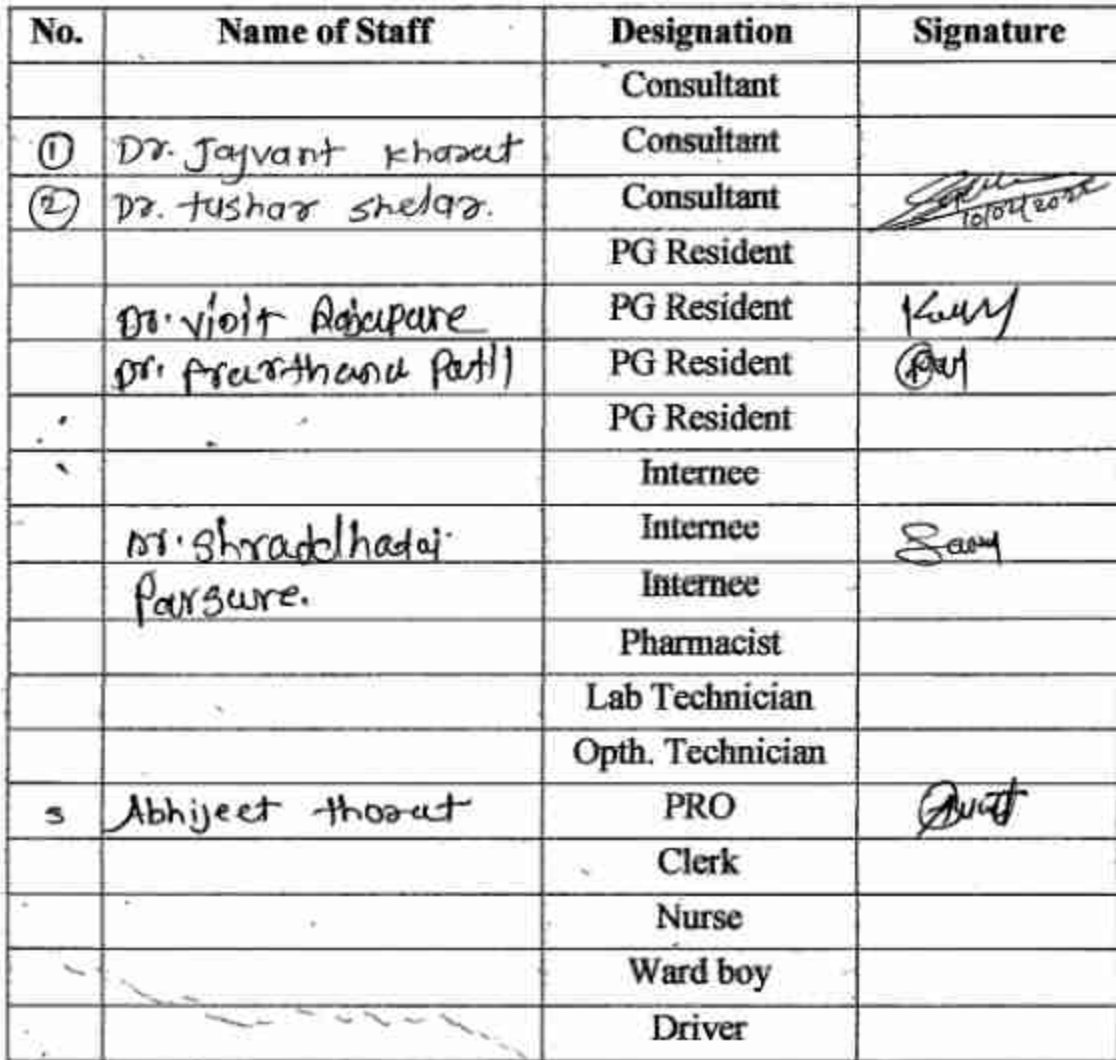 No. Name of Staff Designation Signature
Consultant
① Dr. Jayvant Khosat Consultant
② Dr. tushar shelar. Consultant 10/02/202
PG Resident
Dr. Rajapure PG Resident
Dr. Prarthana Patil PG Resident
PG Resident
Internee
Dr. Shraddha Internee
Parsure. Internee
Pharmacist
Lab Technician
Opth. Technician
Abhijeet thorat PRO
Clerk
Nurse
Ward boy
Driver